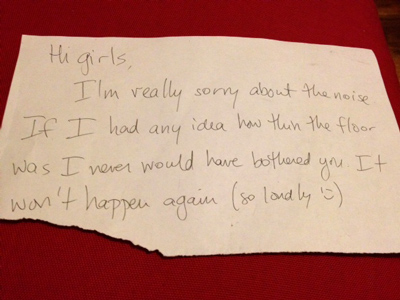 Hi girls,
I'm really sorry about the noise
If I had any idea how thin the floor
was I never would have bothered you. It
won't happen again (so loudly ☺)